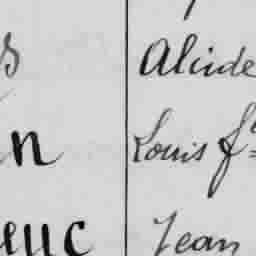 s Alcide
n Louis f
euc Jean